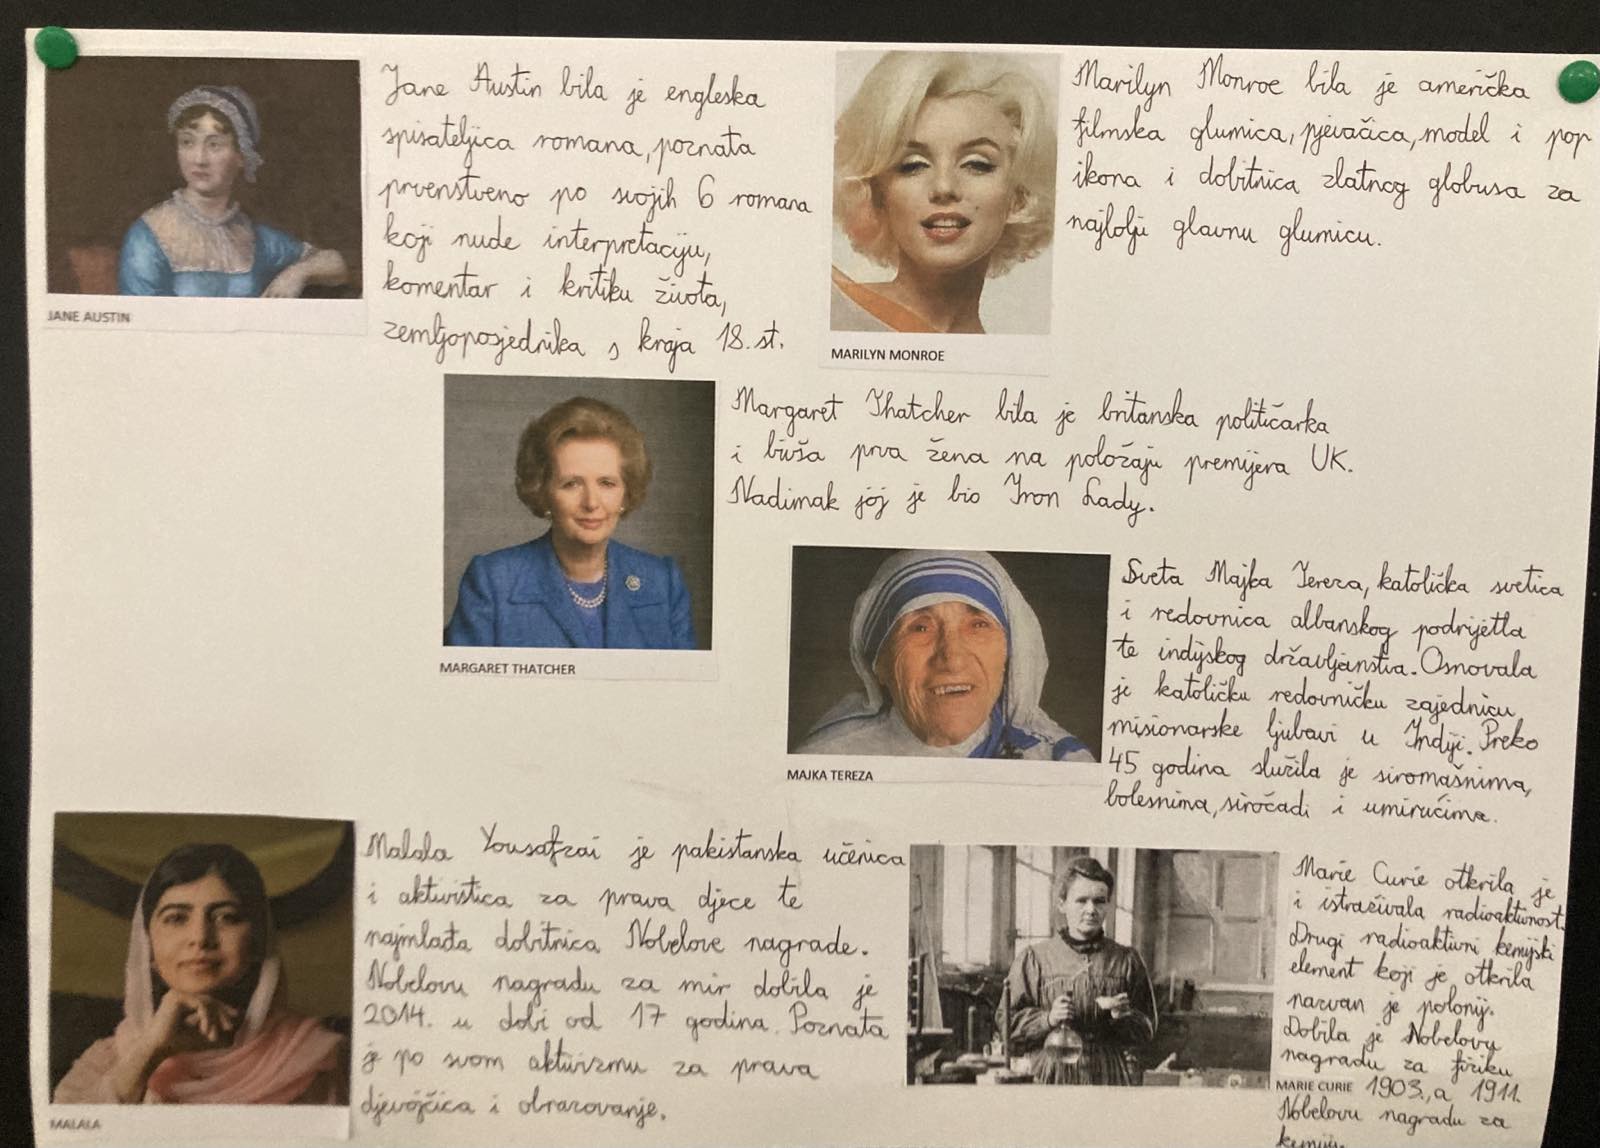 Jane Austin bila je engleska
spisateljica romana, poznata
prvenstveno po svojih 6 romana
koji nude interpretaciju,
komentar i kritiku života,
zemljoposjednika s kraja 18. st.
JANE AUSTIN
Marilyn Monroe bila je američka
filmska glumica, pjevačica, model i pop
ikona i dobitnica zlatnog globusa za
najbolju glavnu glumicu.
MARILYN MONROE
Margaret Thatcher bila je britanska političarka
i bivša prva žena na položaju premijera UK.
Nadimak joj je bio Iron Lady.
MARGARET THATCHER
Sveta Majka Tereza, katolička svetica
i redovnica albanskog podrijetla
te indijskog državljanstva. Osnovala
je katoličku redovničku zajednicu
misionarske ljubavi u Indiji. Preko
45 godina služila je siromašnima,
bolesnima, siročadi i umirućima.
MAJKA TEREZA
Malala Yousafzai je pakistanska učenica
i aktivistica za prava djece te
najmlađa dobitnica Nobelove nagrade.
Nobelovu nagradu za mir dobila je
2014. u dobi od 17 godina. Poznata
je po svom aktivizmu za prava
djevojčica i obrazovanje.
MALALA
Marie Curie otkrila je
i istraživala radioaktivnost.
Drugi radioaktivni kemijski
element koji je otkrila
nazvan je polonij.
Dobila je Nobelovu
nagradu za fiziku
MARIE CURIE 1903., a 1911.
Nobelovu nagradu za
kemiju.